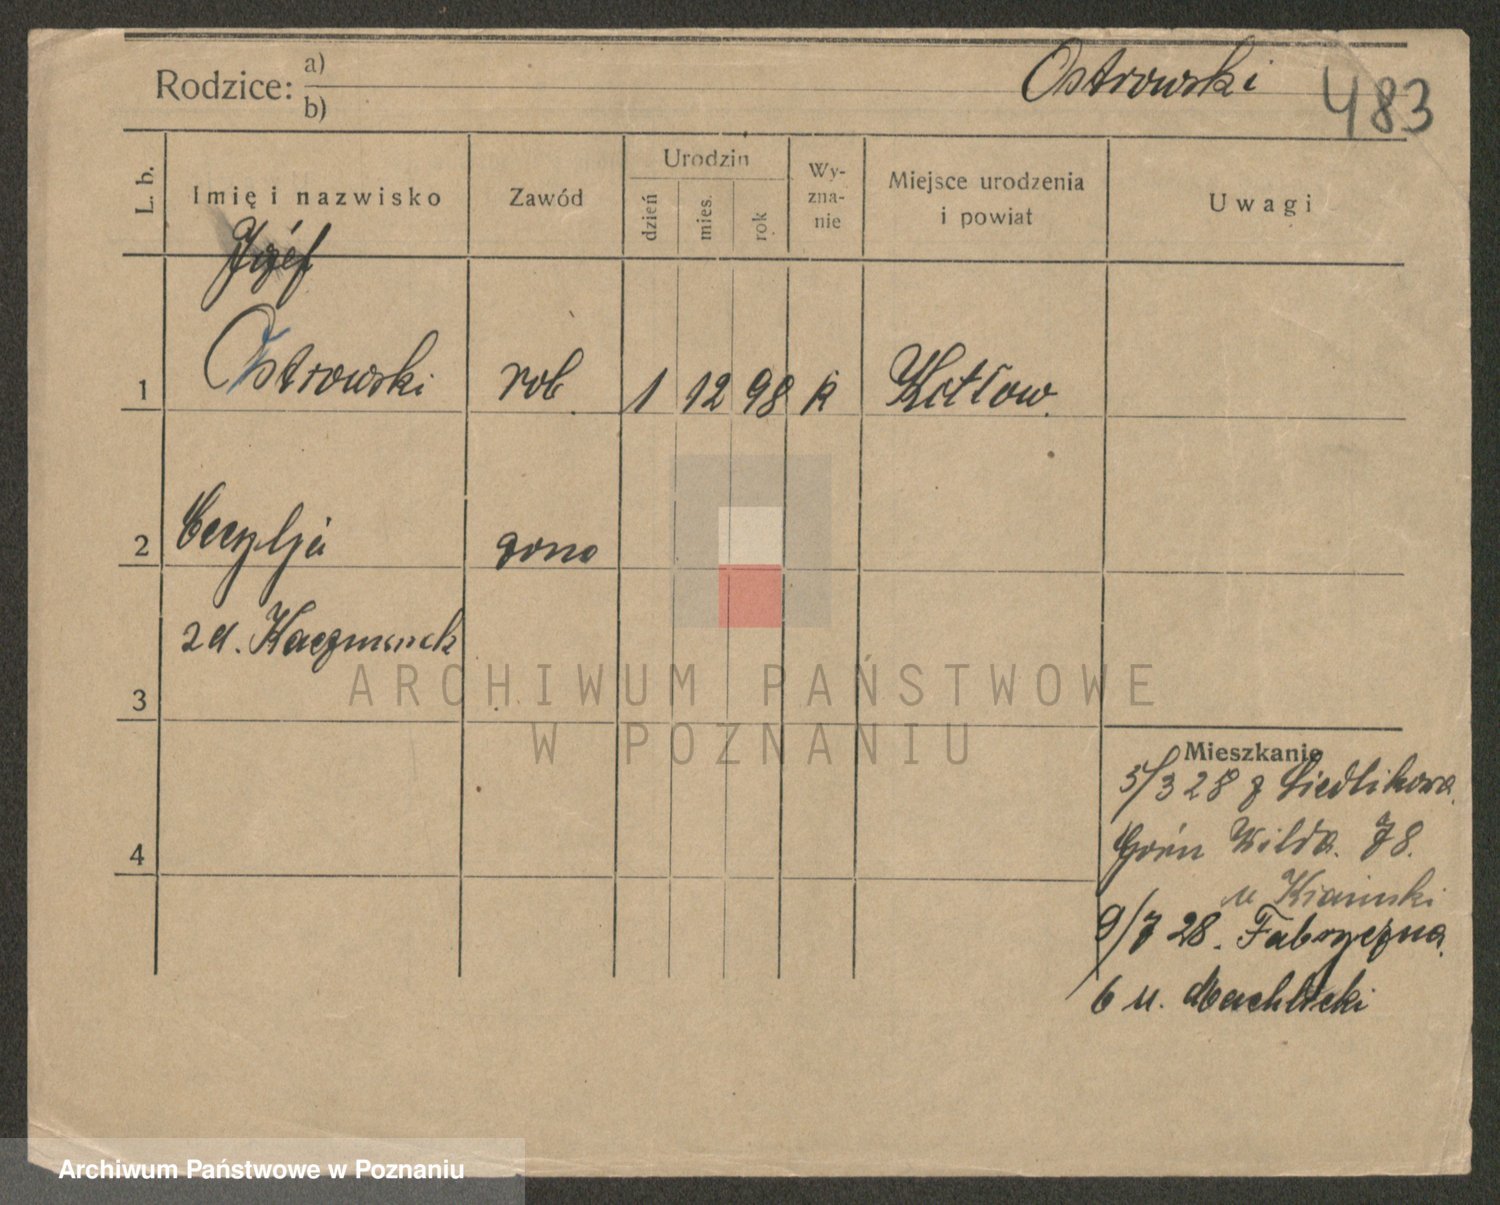 Rodzice: a)
b)
Ostrowski 483
L. b.
Imię i nazwisko
Zawód
Urodzin
dzień
mies.
rok
Wy-
zna-
nie
Miejsce urodzenia
i powiat
Uwagi
Józef
1 Ostrowski rob. 1 12 98 k Kotłow.
2 Cecylja żona
zd. Kaczmarek
3
4
Mieszkanie
5/3 28 z Siedlikowa.
Górn Wilda. 78.
u
9/7 28. Fabryczna.
6 u. Machlicki
ARCHIWUM PAŃSTWOWE
W POZNANIU
Archiwum Państwowe w Poznaniu